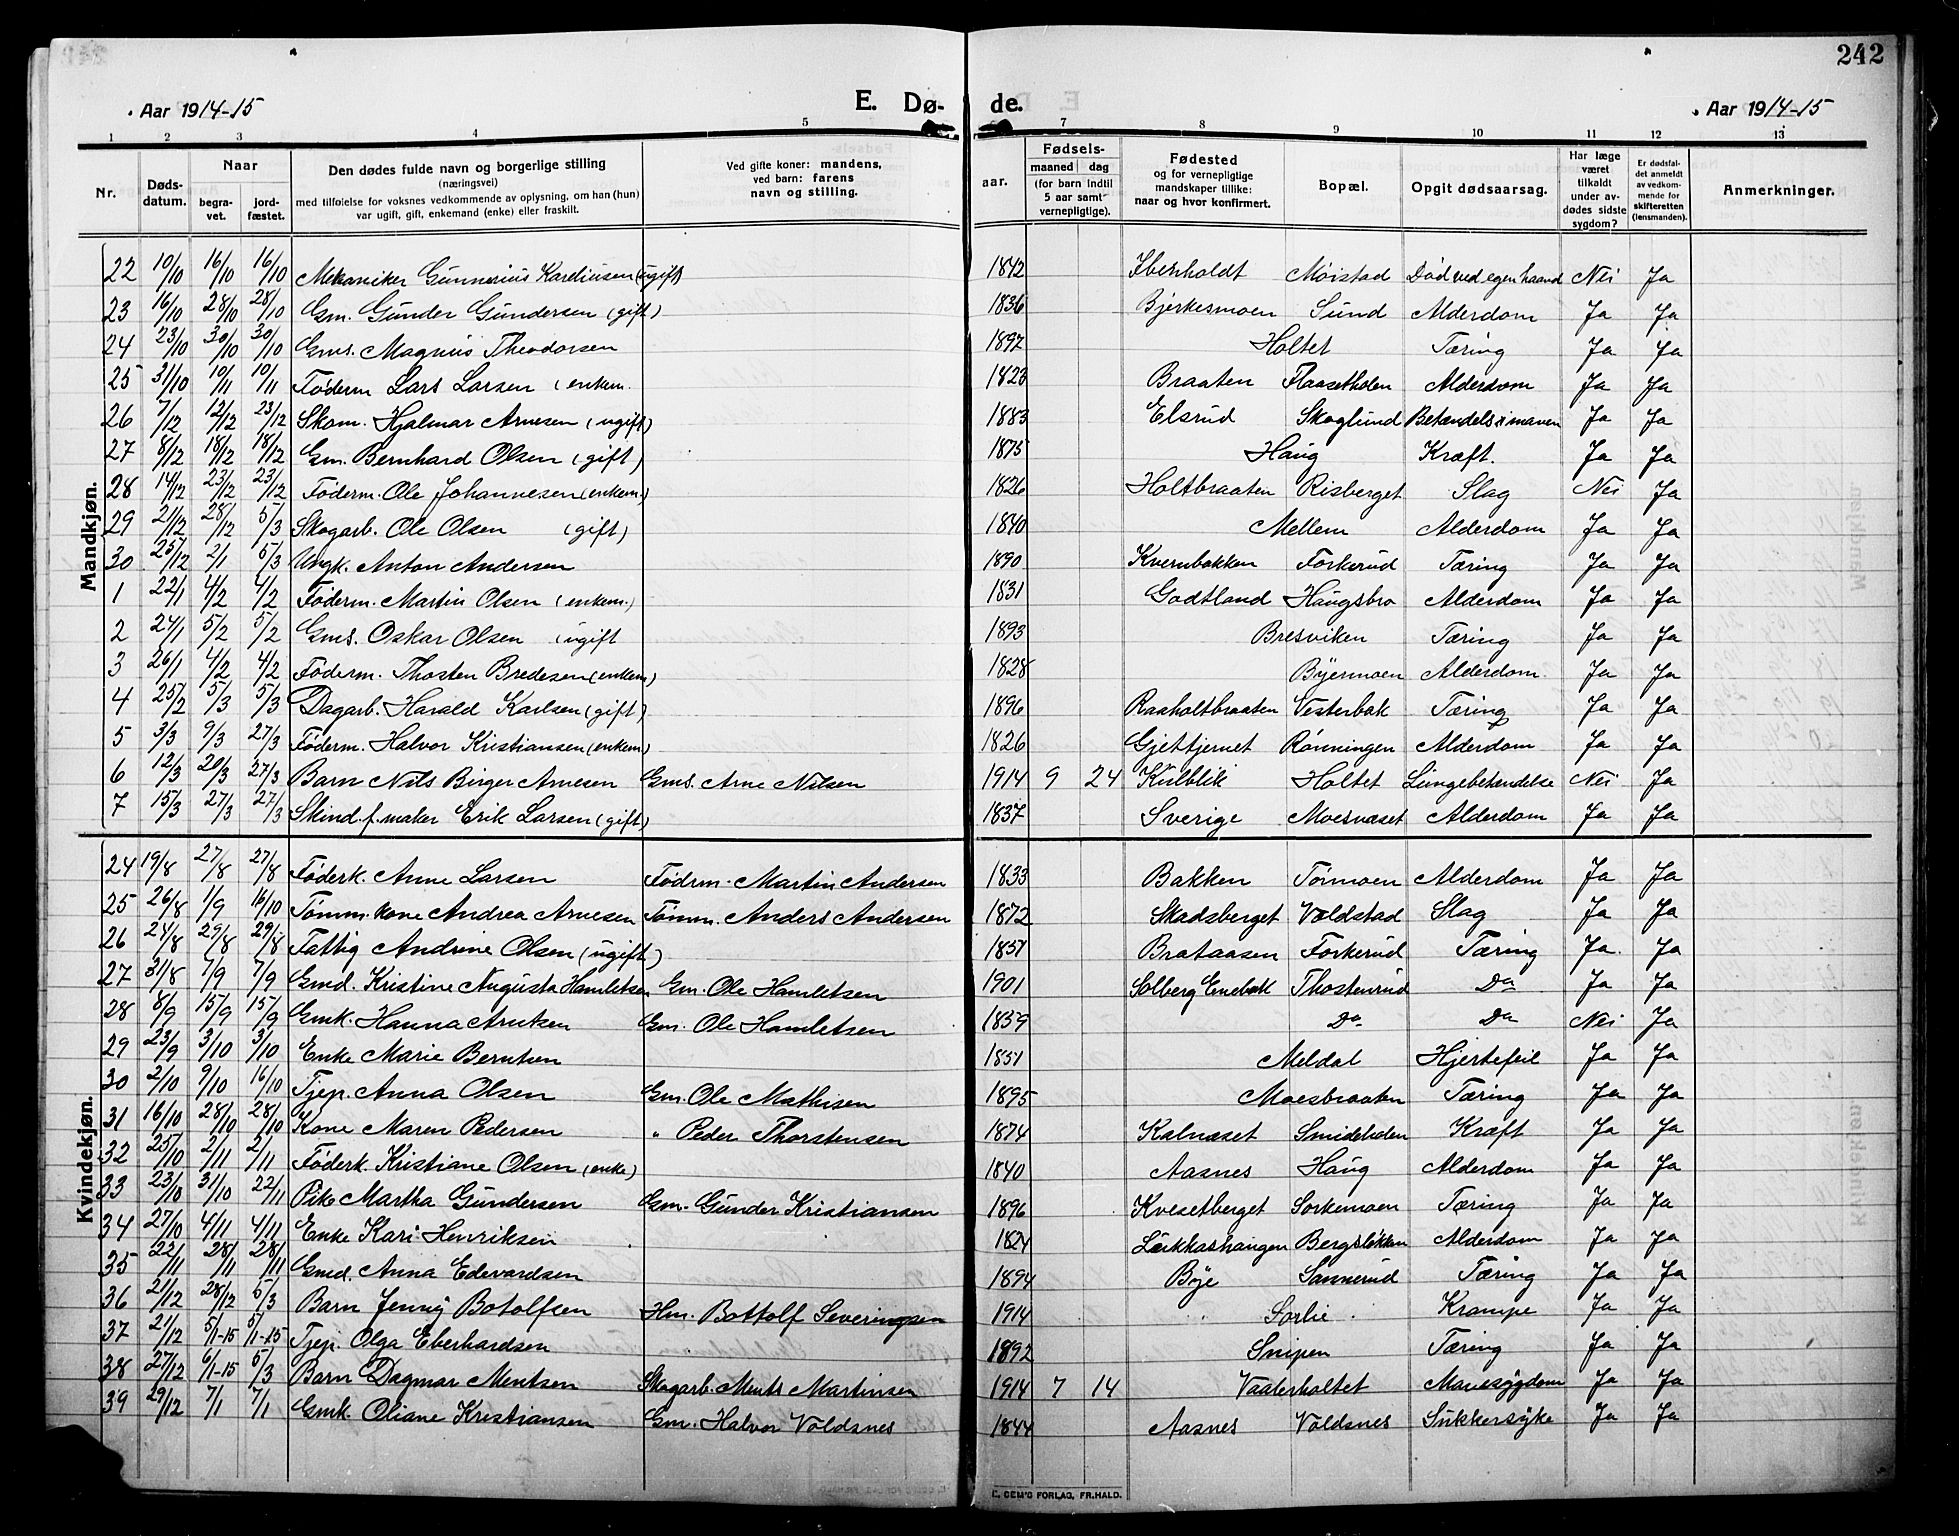 242
Aar 1914-15 E. Dø- de. Aar 1914-15
1 2 3 4 5 7 8 9 10 11 12 13
Nr. Døds-datum. Naar begra-vet. jord-fæstet. Den dødes fulde navn og borgerlige stilling (næringsvei) med tilføielse for voksnes vedkommende av oplysning, om han (hun) var ugift, gift, enkemand (enke) eller fraskilt. Ved gifte koner: mandens, ved barn: farens navn og stilling. aar. Fødsels- maaned dag (for barn indtil 5 aar samt vernepligtige). Fødested og for vernepligtige mandskaper tillike: naar og hvor konfirmert. Bopæl. Opgit dødsaarsag. Har læge været tilkaldt under av-dødes sidste sygdom? Er dødsfal-det anmeldt av vedkom-mende for skifteretten (lensmanden). Anmerkninger.
Mandkjøn.
22 10/10 16/10 16/10 Mekaniker Gunnerius Kareliusen (ugift) 1842 Ibenholdt Moistad Død ved egen haand Nei Ja
23 16/10 28/10 28/10 Gm. Gunder Gundersen (gift) 1836 Bjerkesmoen Sund Alderdom Ja Ja
24 23/10 30/10 30/10 Gms. Magnus Theodorsen 1897 Holtet Tæring Ja Ja
25 31/10 10/11 10/11 Føderm Lars Larsen (enkem. 1823 Braaten Flaasetholen Alderdom Ja Ja
26 7/12 12/12 23/12 Skom. Hjalmar Arnesen (ugift) 1883 Elsrud Skoglund Betændels. i maven Ja Ja
27 8/12 18/12 18/12 Gm. Bernhard Olsen (gift) 1875 Haug Kræft. Ja Ja
28 14/12 23/12 23/12 Føderm. Ole Johannesen (enkem.) 1826 Holtbraaten Risberget Slag Nei Ja
29 21/12 28/12 5/3 Skogarb. Ole Olsen (gift) 1840 Mellem Alderdom Ja Ja
30 25/12 2/1 5/3 Ungk. Anton Andersen 1890 Kvernbakken Forkerud Tæring Ja Ja
1 22/1 4/2 4/2 Føderm. Martin Olsen (enkem.) 1831 Godtland Haugsbro Alderdom Ja Ja
2 24/1 5/2 5/2 Gms. Oskar Olsen (ugift 1893 Bresviken Tæring Ja Ja
3 26/1 4/2 4/2 Føderm. Thosten Bredesen (enkem) 1828 Byermoen Alderdom. Ja Ja
4 25/2 5/3 5/3 Dagarb. Harald Karlsen (gift) 1896 Raaholtbraaten Vesterbak Tæring Ja Ja
5 3/3 9/3 27/3 Føderm. Halvor Kristiansen (enkem) 1826 Gjettjernet Rønningen Alderdom Ja Ja
6 12/3 20/3 27/3 Barn Nils Birger Arnesen Gms. Arne Nilsen 1914 9 24 Kulblik Holtet Lungebetændelse Nei Ja
7 15/3 27/3 27/3 Skind.f.maker Erik Larsen (gift) 1837 Sverige Moesvaset Alderdom Ja Ja
Kvindekjøn.
24 19/8 27/8 27/8 Føderk. Anne Larsen Fødrm. Martin Andersen 1833 Bakken Tormoen Alderdom Ja Ja
25 26/8 1/9 16/10 Tømm.kone Andrea Arnesen Tømm. Anders Andersen 1872 Skadsberget Voldstad Slag Ja Ja
26 24/8 29/8 29/8 Fattig Andrine Olsen (ugift) 1851 Brataasen Forkerud Tæring Ja. Ja
27 31/8 7/9 7/9 Gmd. Kristine Augusta Hamletsen Gm. Ole Hamletsen 1901 Solberg Enebak Thostenrud Do Ja Ja
28 8/9 15/9 15/9 Gmk. Hanna Arntsen Gm. Ole Hamletsen 1839 Do Do Nei Ja
29 23/9 3/10 3/10 Enke Marie Berntsen 1851 Meldal Hjertefeil Ja Ja
30 2/10 9/10 16/10 Tjep. Anna Olsen Gm. Ole Mathisen 1895 Moesbraaten Tæring Ja Ja
31 16/10 28/10 28/10 Kone Maren Pedersen " Peder Thorstensen 1874 Kalnæset Smideholen Kræft Ja Ja
32 25/10 2/11 2/11 Føderk. Kristiane Olsen (enke) 1840 Aasnes Haug Alderdom Ja Ja
33 23/10 31/10 22/11 Pike Martha Gundersen Gm. Gunder Kristiansen 1896 Kvesetberget Sorkemoen Tæring Ja Ja
34 27/10 4/11 4/11 Enke Kari Henriksen 1824 Lærkkashaugen Bergsløkken Alderdom Ja Ja
35 22/11 28/11 28/11 Gmd. Anna Edevardsen 1894 Bøje Sannerud Tæring Ja Ja
36 21/12 28/12 5/3 Barn Jenny Botolfsen Hm. Bottolf Severingsen 1914 Sorlie Krampe Ja Ja
37 21/12 5/1-15 5/1-15 Tjep. Olga Eberhardsen 1892 Snipen Tæring Ja Ja
38 27/12 6/1-15 5/3 Barn Dagmar Mentsen Skogarb. Ments Martinsen 1914 7 14 Vaalerholtet Mavesygdom Ja Ja
39 29/12 7/1 7/1 Gmk. Oliane Kristiansen Gm. Halvor Voldsnes 1844 Aasnes Voldsnes Sukkersyke Ja Ja
E. SEM'S FORLAG, FR.HALD.